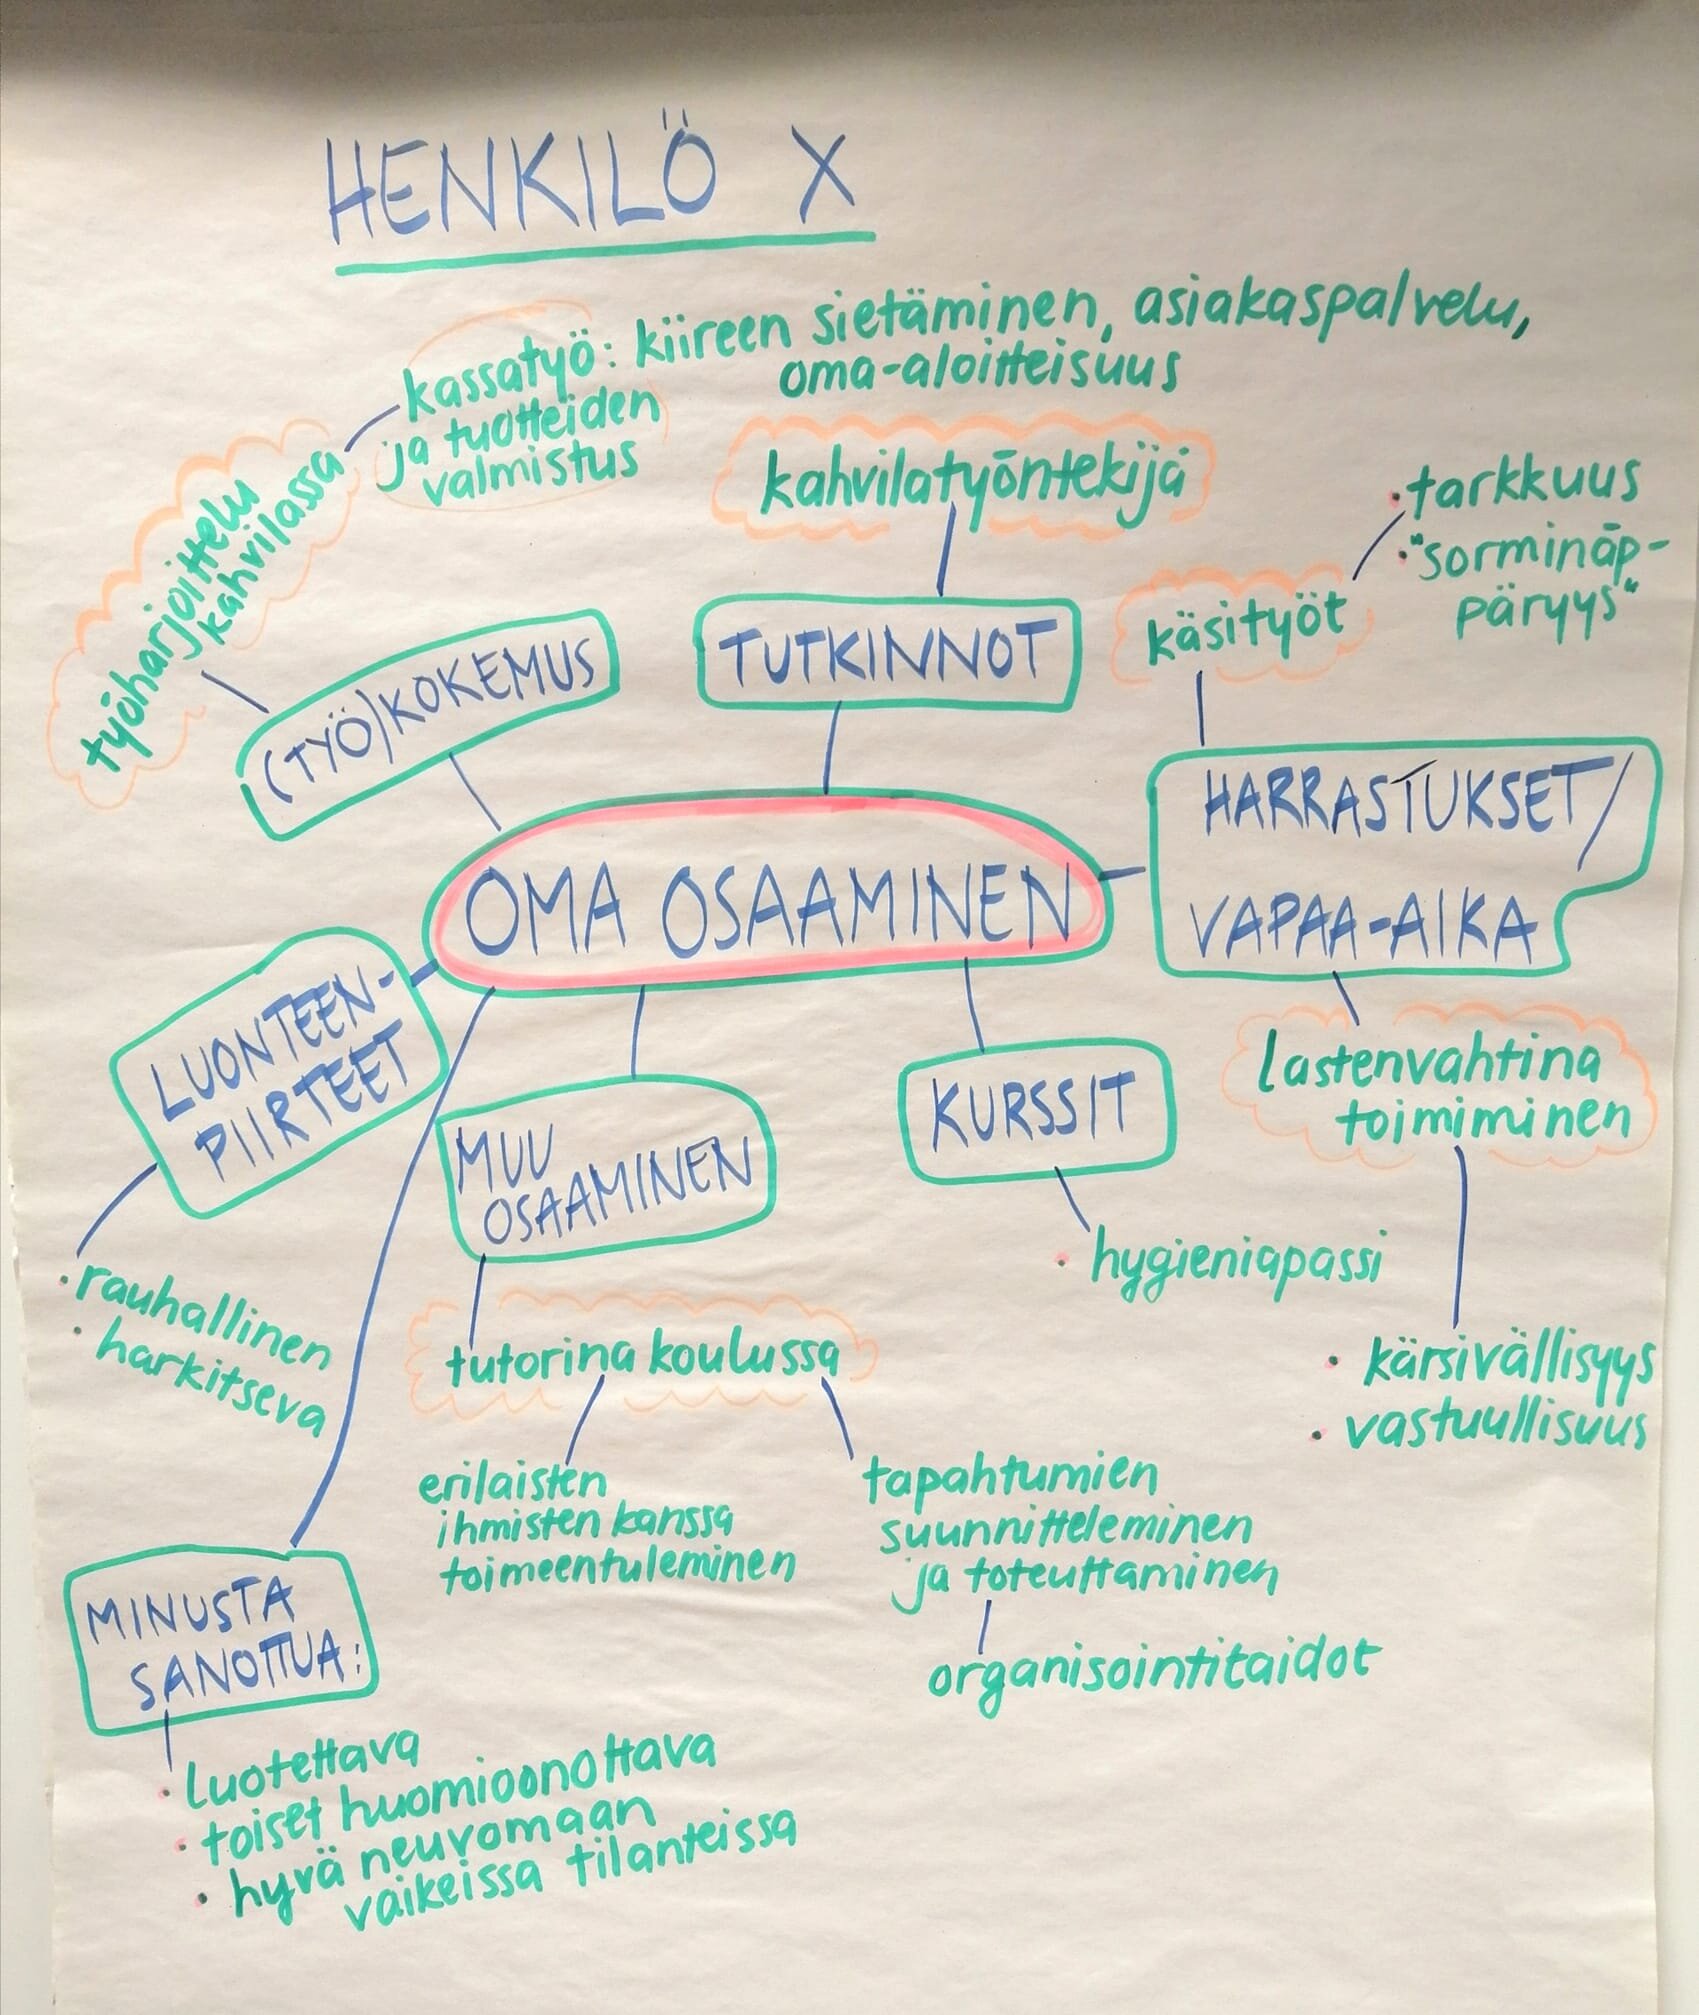 HENKILÖ X
kassatyö: kiireen sietäminen, asiakaspalvelu,
oma-aloitteisuus
ja tuotteiden
valmistus
työharjoittelu
kahvilassa
(TYÖ)KOKEMUS
kahvilatyöntekijä
TUTKINNOT
• tarkkuus
• "sorminäp-
päryys"
käsityöt
HARRASTUKSET/
VAPAA-AIKA
OMA OSAAMINEN
LUONTEEN-
PIIRTEET
• rauhallinen
• harkitseva
MUU
OSAAMINEN
KURSSIT
• hygieniapassi
lastenvahtina
toimiminen
• kärsivällisyys
• vastuullisuus
tutorina koulussa
erilaisten
ihmisten kanssa
toimeentuleminen
tapahtumien
suunnitteleminen
ja toteuttaminen
organisointitaidot
MINUSTA
SANOTTUA:
• luotettava
• toiset huomioonottava
• hyvä neuvomaan
vaikeissa tilanteissa